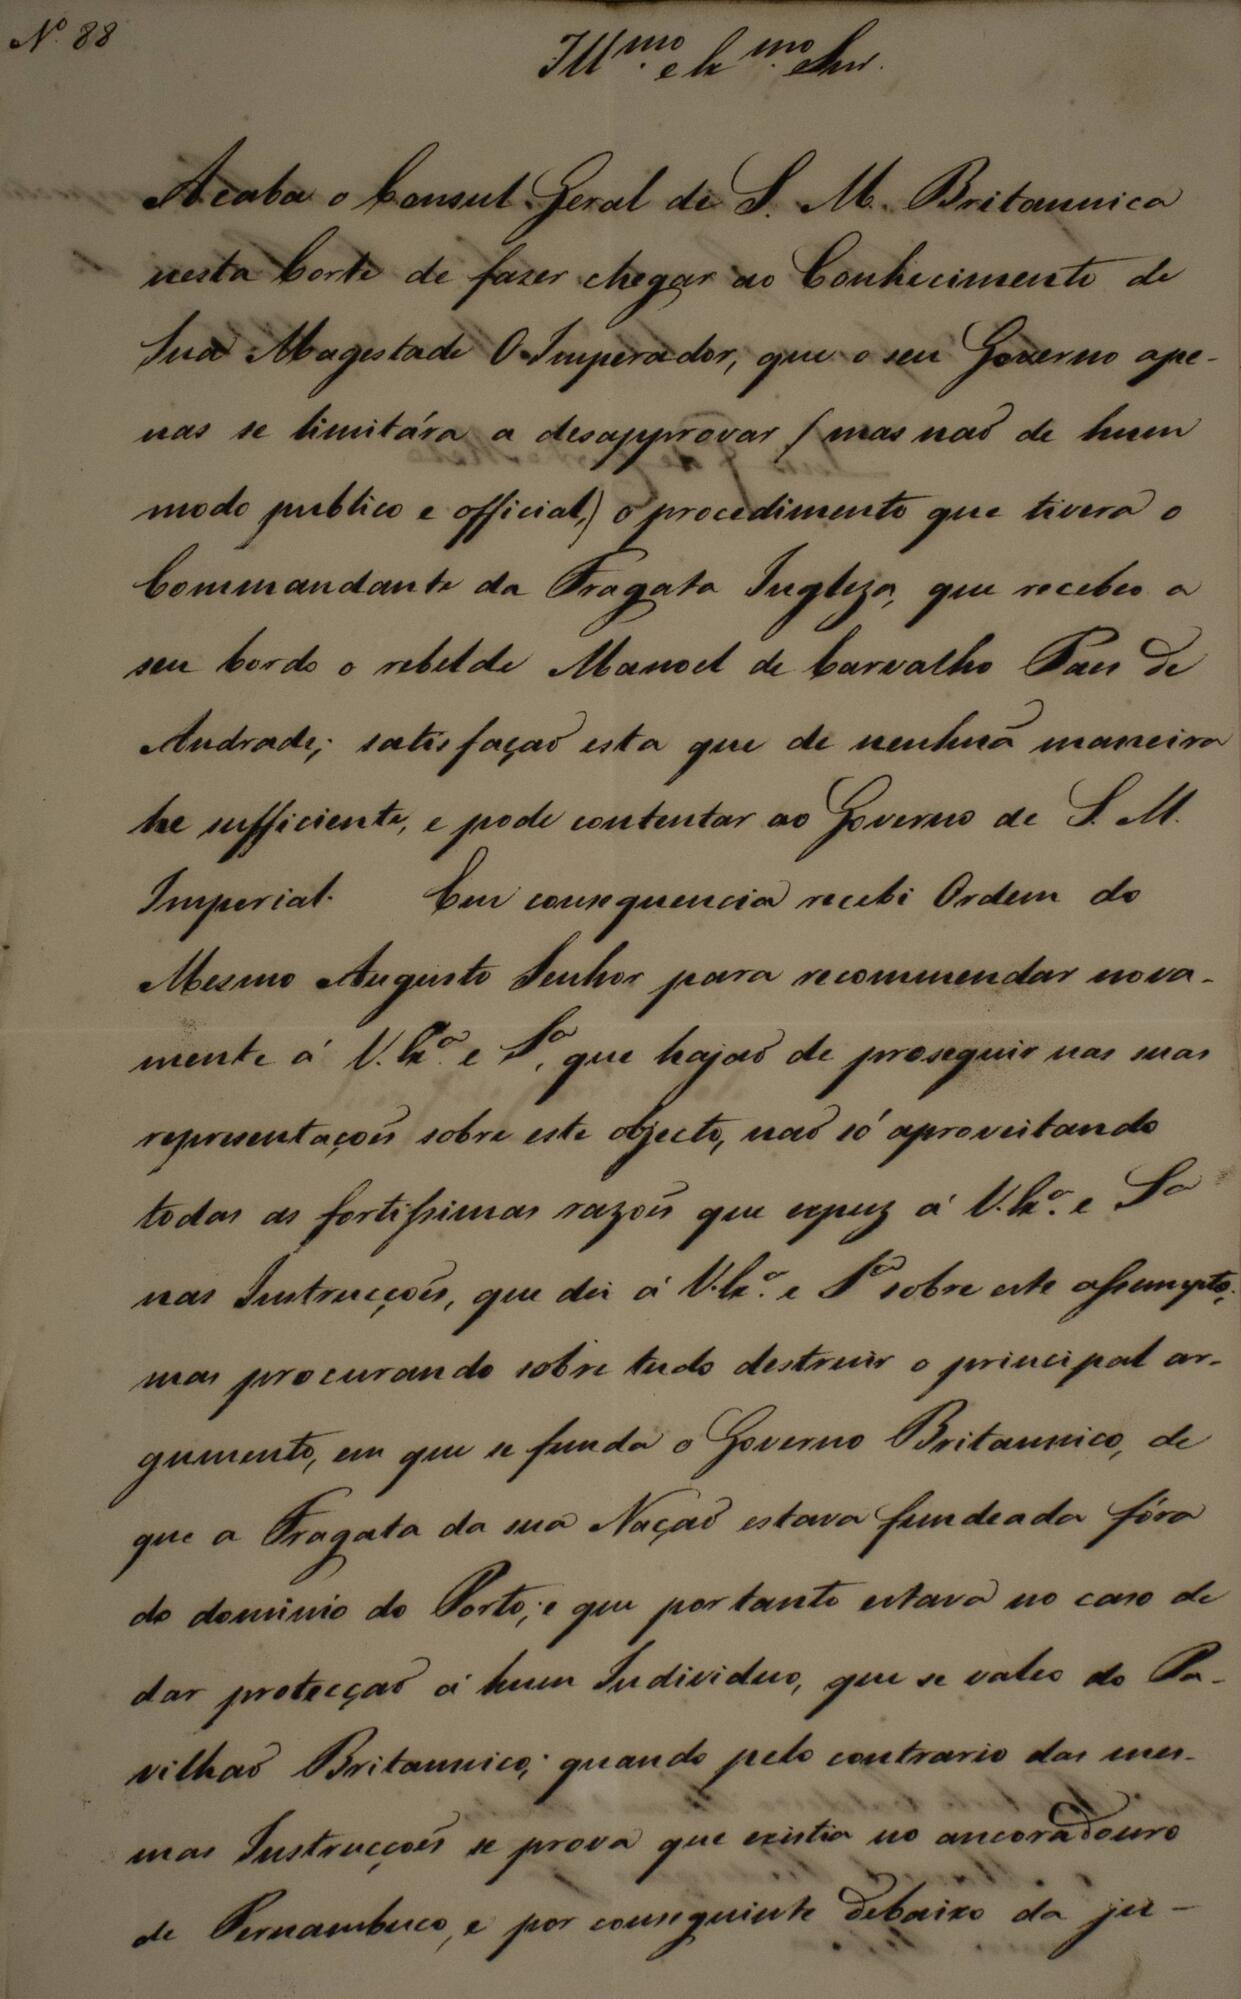 Nº 88
Illmo. e Exmo. Snr.
Acaba o Consul Geral de S. M. Britannica
nesta Corte de fazer chegar ao Conhecimento de
Sua Magestade O Imperador, que o seu Governo ape-
nas se limitára a desapprovar (mas naõ de hum
modo publico e official,) o procedimento que tivera o
Commandante da Fragata Ingleza, que recebeo a
seu bordo o rebelde Manoel de Carvalho Paes de
Andrade; satisfaçaõ esta que de nenhuã maneira
he sufficiente, e pode contentar ao Governo de S. M.
Imperial. Em consequencia recebi Ordem do
Mesmo Augusto Senhor para recommendar nova-
mente á V. Exa. e Sa. que hajaõ de proseguir nas suas
representaçoẽs sobre este objecto, naõ só aproveitando
todas as fortissimas razoẽs que expuz á V. Exa. e Sa
nas Instrucçoẽs, que dei á V. Exa. e Sa sobre este assumpto;
mas procurando sobre tudo destruir o principal ar-
gumento, em que se funda o Governo Britannico, de
que a Fragata da sua Naçaõ estava fundeada fóra
do dominio do Porto; e que portanto estava no caso de
dar protecçaõ á hum Individuo, que se valeo do Pa-
vilhaõ Britannico; quando pelo contrario das mes-
mas Instrucçoẽs se prova que existia no ancoradouro
de Pernambuco, e por conseguinte debaixo da ju-